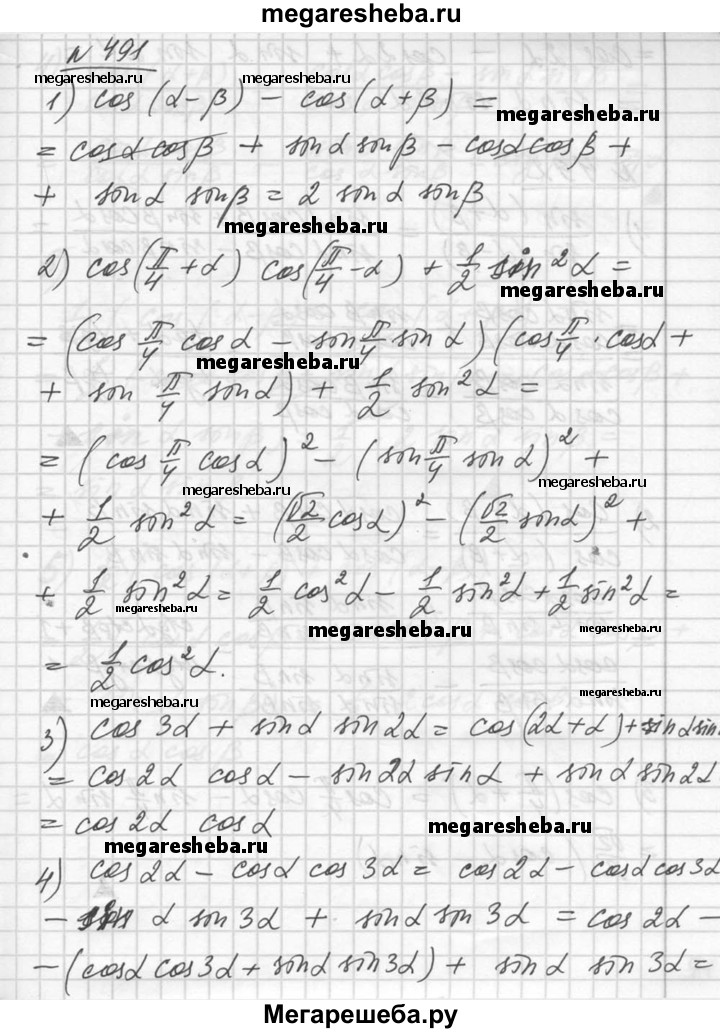 megaresheba.ru
N 491
megaresheba.ru megaresheba.ru
1) cos (α-β) - cos (α+β) =
megaresheba.ru
= cosα cosβ + sinα sinβ - cosα cosβ +
+ sinα sinβ = 2 sinα sinβ
megaresheba.ru
2) cos(π/4 + α) cos(π/4 - α) + 1/2 sin²α =
megaresheba.ru
= (cos π/4 cosα - sin π/4 sin α) (cos π/4 · cosα +
megaresheba.ru
+ sin π/4 sinα) + 1/2 sin²α =
= (cos π/4 cosα)² - (sin π/4 sinα)² +
megaresheba.ru megaresheba.ru
+ 1/2 sin²α = (√2/2 cosα)² - (√2/2 sinα)² +
+ 1/2 sin²α = 1/2 cos²α - 1/2 sin²α + 1/2 sin²α =
megaresheba.ru
megaresheba.ru megaresheba.ru
= 1/2 cos²α.
megaresheba.ru megaresheba.ru
3) cos 3α + sinα sin2α = cos(2α+α) + sinα sin
= cos2α cosα - sin2α sinα + sinα sin2α
= cos2α cosα
megaresheba.ru megaresheba.ru
4) cos2α - cosα cos 3α = cos2α - cosα cos3α
- sin α sin 3α + sinα sin 3α = cos2α -
- (cosα cos3α + sinα sin3α) + sinα sin 3α =
Мегарешеба.ру